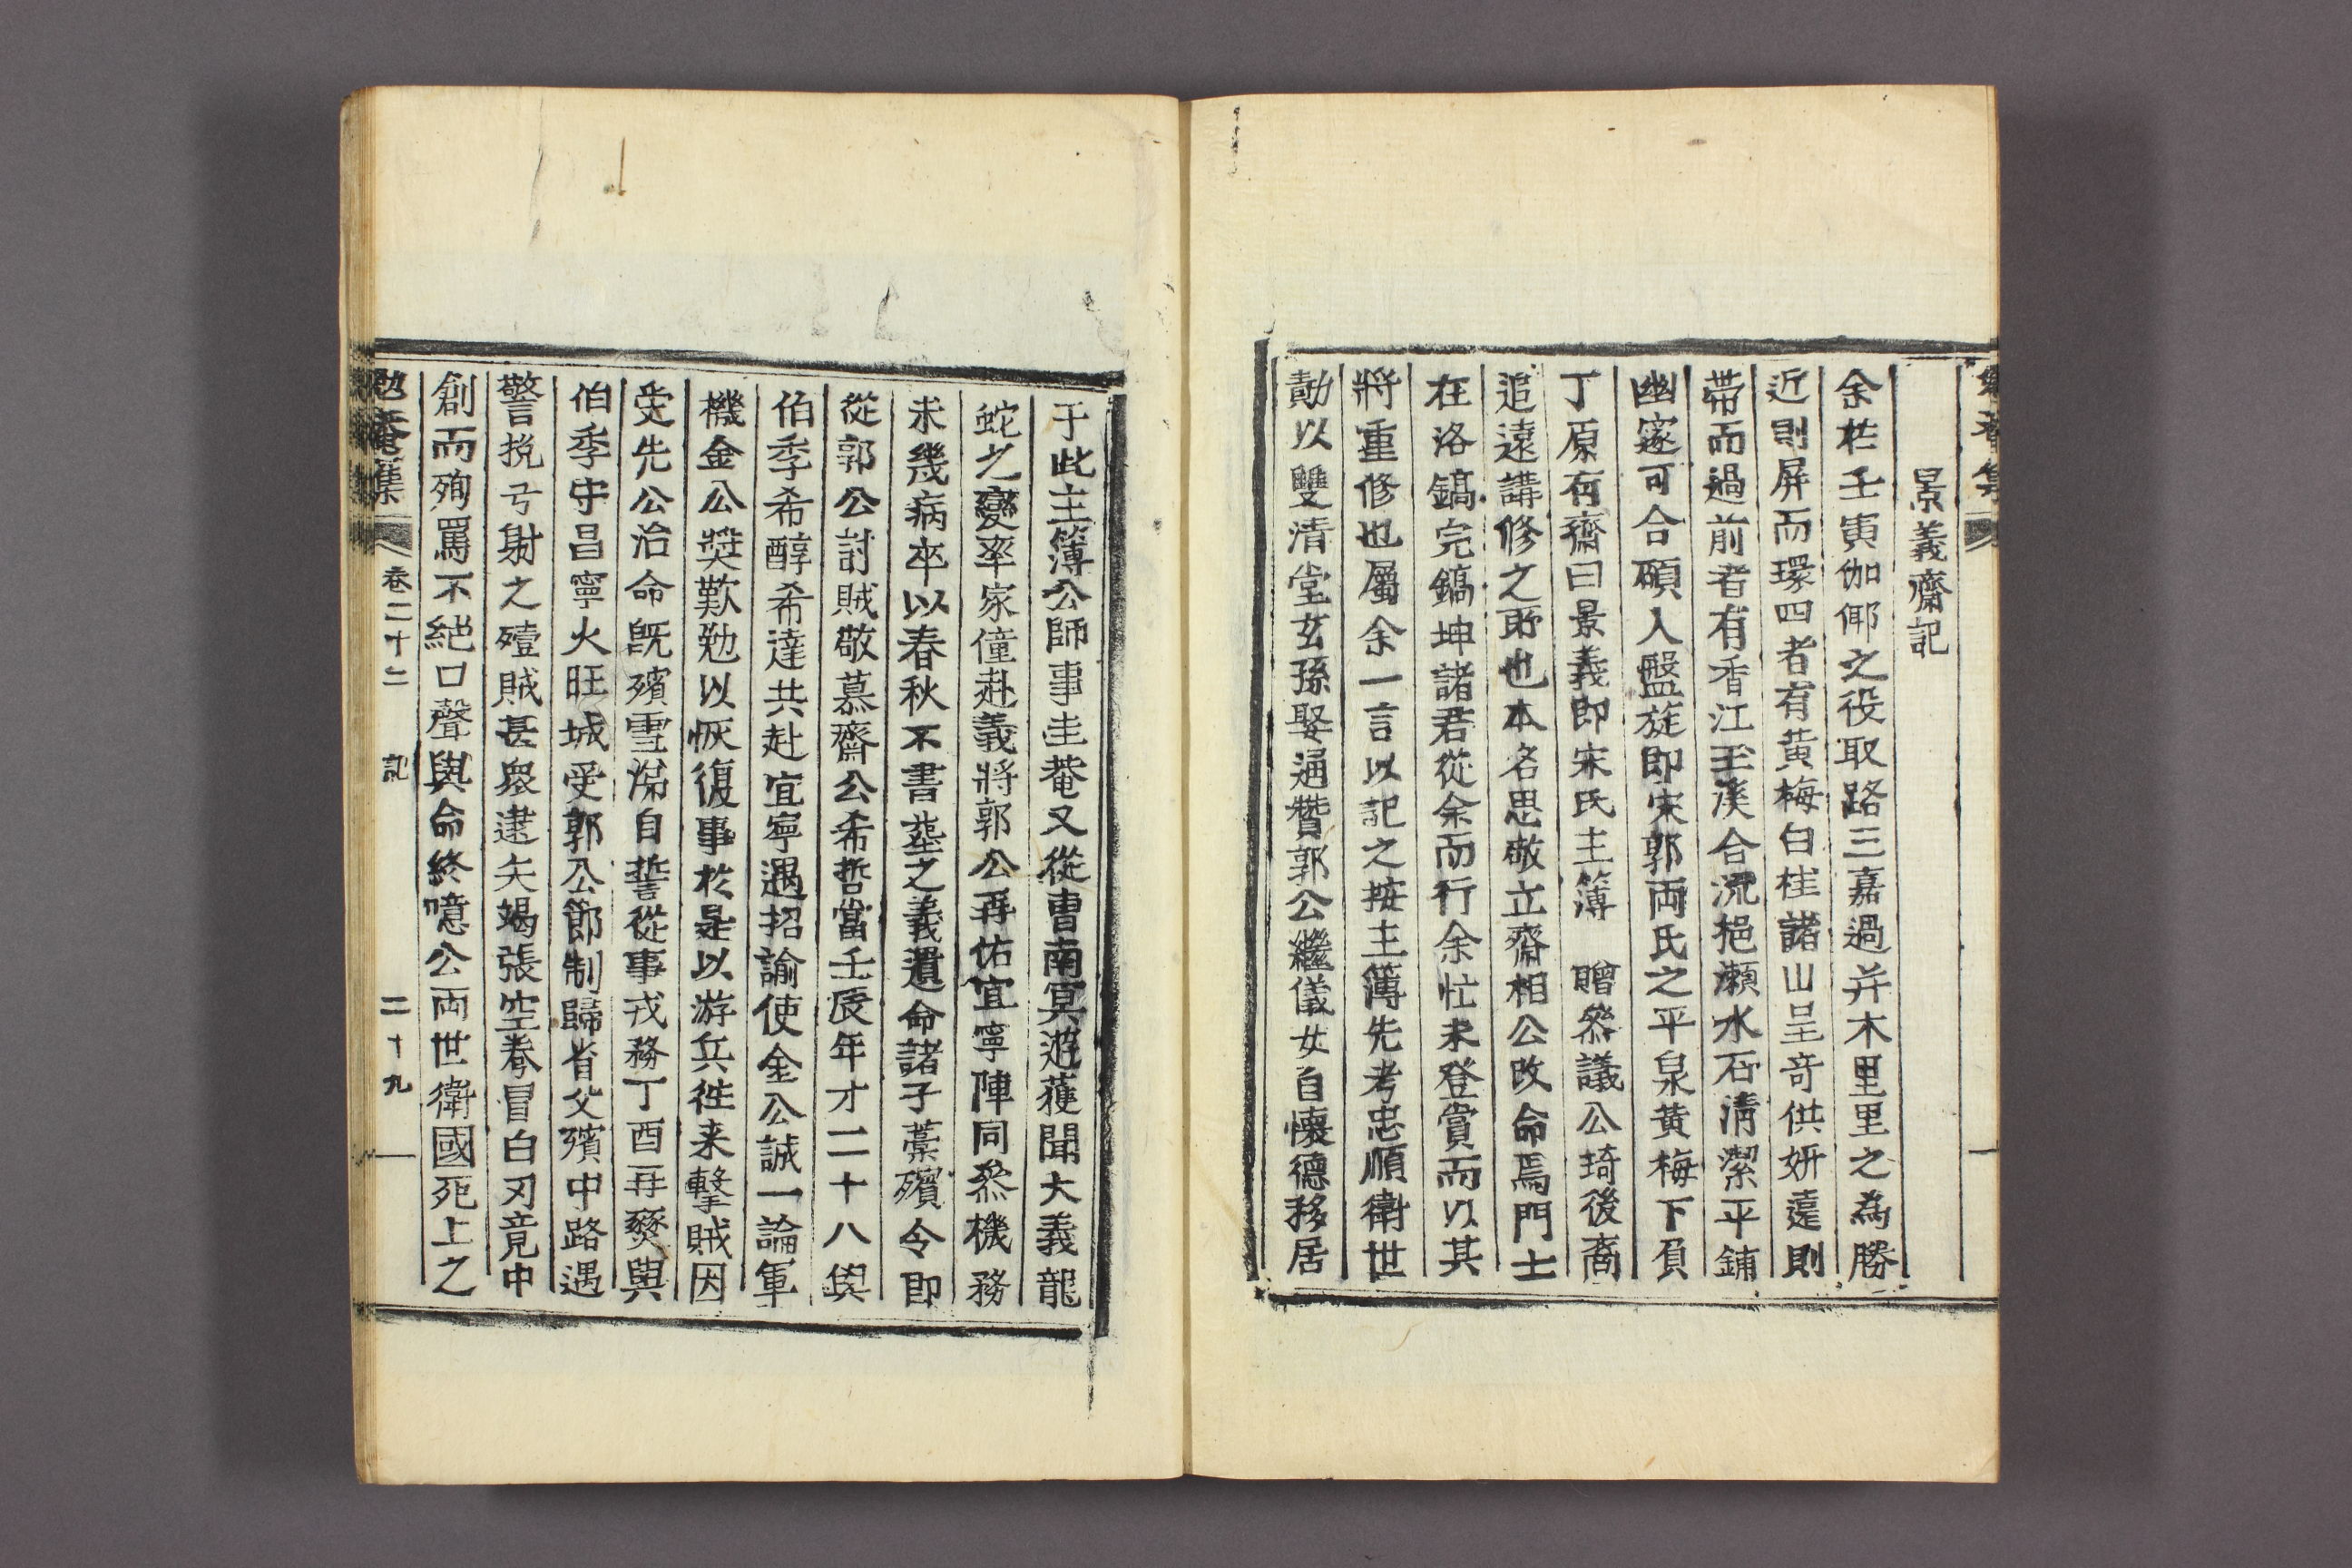 景義齋記
余在壬寅伽倻之役取路三嘉過幷木里里之爲勝
近則屛而環四者有黃梅白桂諸山呈奇供姸遠則
帶而過前者有香江玉溪合流挹瀨水石淸潔平鋪
幽邃可合碩人盤旋卽宋郭兩氏之平泉黃梅下負
丁原有齋曰景義卽宋氏主簿 贈叅議公琦後裔
追遠講修之所也本名思敬立齋相公改命焉門士
在洛鎬完鎬坤諸君從余而行余忙未登賞而以其
將重修也屬余一言以記之按主簿先考忠順衛世
勣以雙淸堂玄孫娶通贊郭公繼儀女自懷德移居
于此主簿公師事圭菴又從曹南冥遊獲聞大義龍
蛇之變率家僮赴義將郭公再佑宜寧陣同叅機務
未幾病卒以春秋不書葬之義遺命諸子藁殯令卽
從郭公討賊敬慕齋公希哲當壬辰年才二十八與
伯季希醇希達共赴宜寧遇招諭使金公誠一論軍
機金公奬歎勉以恢復事於是以游兵徃来擊賊因
受先公治命旣殯雪涕自誓從事戎務丁酉再燹與
伯季守昌寧火旺城受郭公節制歸省父殯中路遇
警挽弓射之殪賊甚衆逮矢竭張空弮冒白刃竟中
創而殉罵不絶口聲與命終噫公兩世衛國死上之
勉菴集 卷二十二 記 二十九